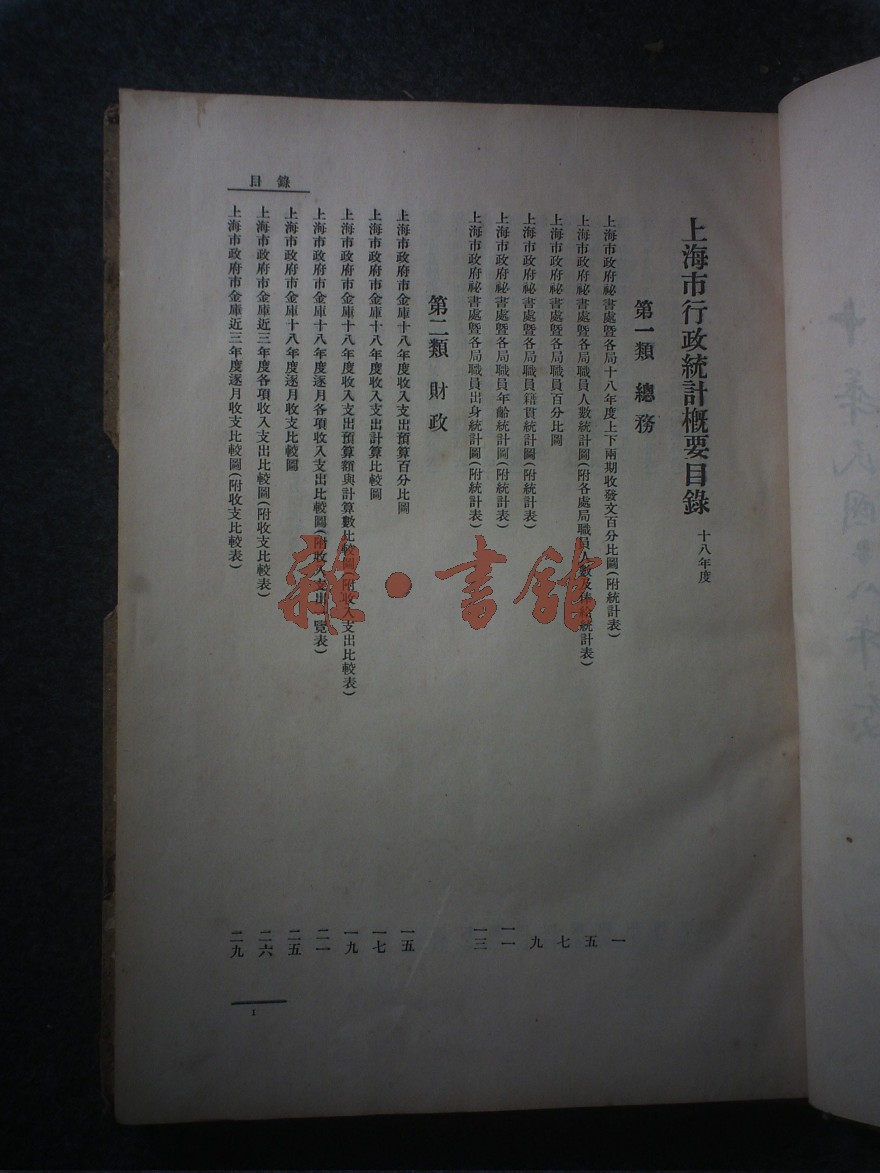 上海市行政統計概要目錄 十八年度
第一類 總務
上海市政府祕書處暨各局十八年度上下兩期收發文百分比圖(附統計表) 一
上海市政府祕書處暨各局職員人數統計圖(附各處局職員人數及俸給統計表) 五
上海市政府祕書處暨各局職員百分比圖 七
上海市政府祕書處暨各局職員籍貫統計圖(附統計表) 九
上海市政府祕書處暨各局職員年齡統計圖(附統計表) 一一
上海市政府祕書處暨各局職員出身統計圖(附統計表) 一三
第二類 財政
上海市政府市金庫十八年度收入支出預算百分比圖 一五
上海市政府市金庫十八年度收入支出計算比較圖 一七
上海市政府市金庫十八年度收入支出預算額與計算數比較圖(附收入支出比較表) 一九
上海市政府市金庫十八年度逐月各項收入支出比較圖(附收入支出一覽表) 二一
上海市政府市金庫十八年度逐月收支比較圖 二五
上海市政府市金庫近三年度各項收入支出比較圖(附收支比較表) 二六
上海市政府市金庫近三年度逐月收支比較圖(附收支比較表) 二九
目錄
1
雜·書館